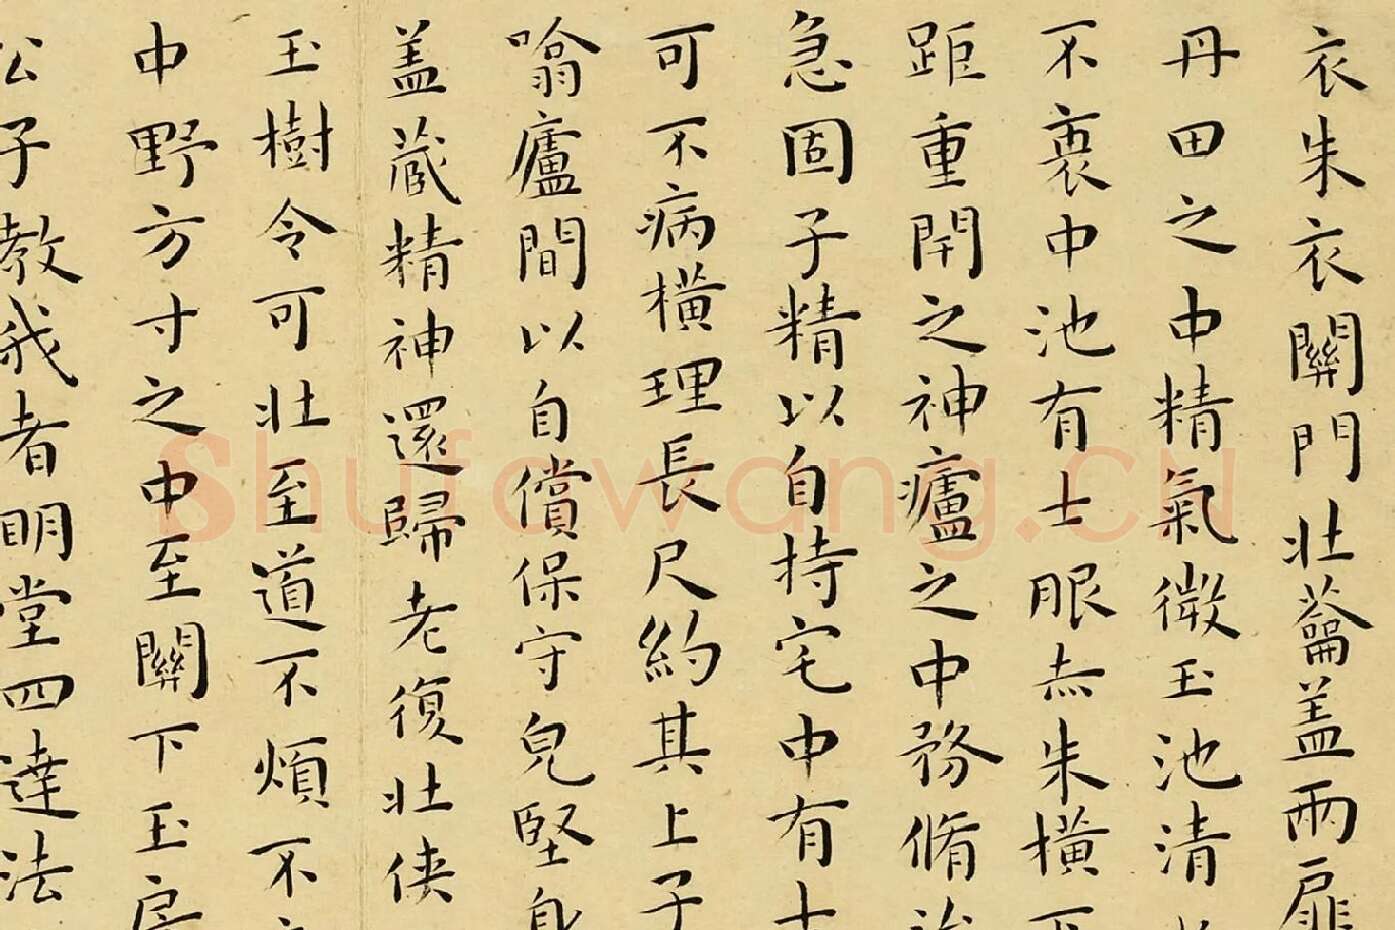 衣朱衣關門壯蘥盖兩扉
丹田之中精氣微玉池清
不衷中池有士眼赤朱橫下
距重閈之神廬之中務脩治
急固子精以自持宅中有士
可不病橫理長尺約其上子
噏廬間以自償保守皃堅身
盖藏精神還歸老復壯侠
玉樹令可壯至道不煩不
中野方寸之中至關下玉房
公子教我者明堂四達法
Shufawang.CN